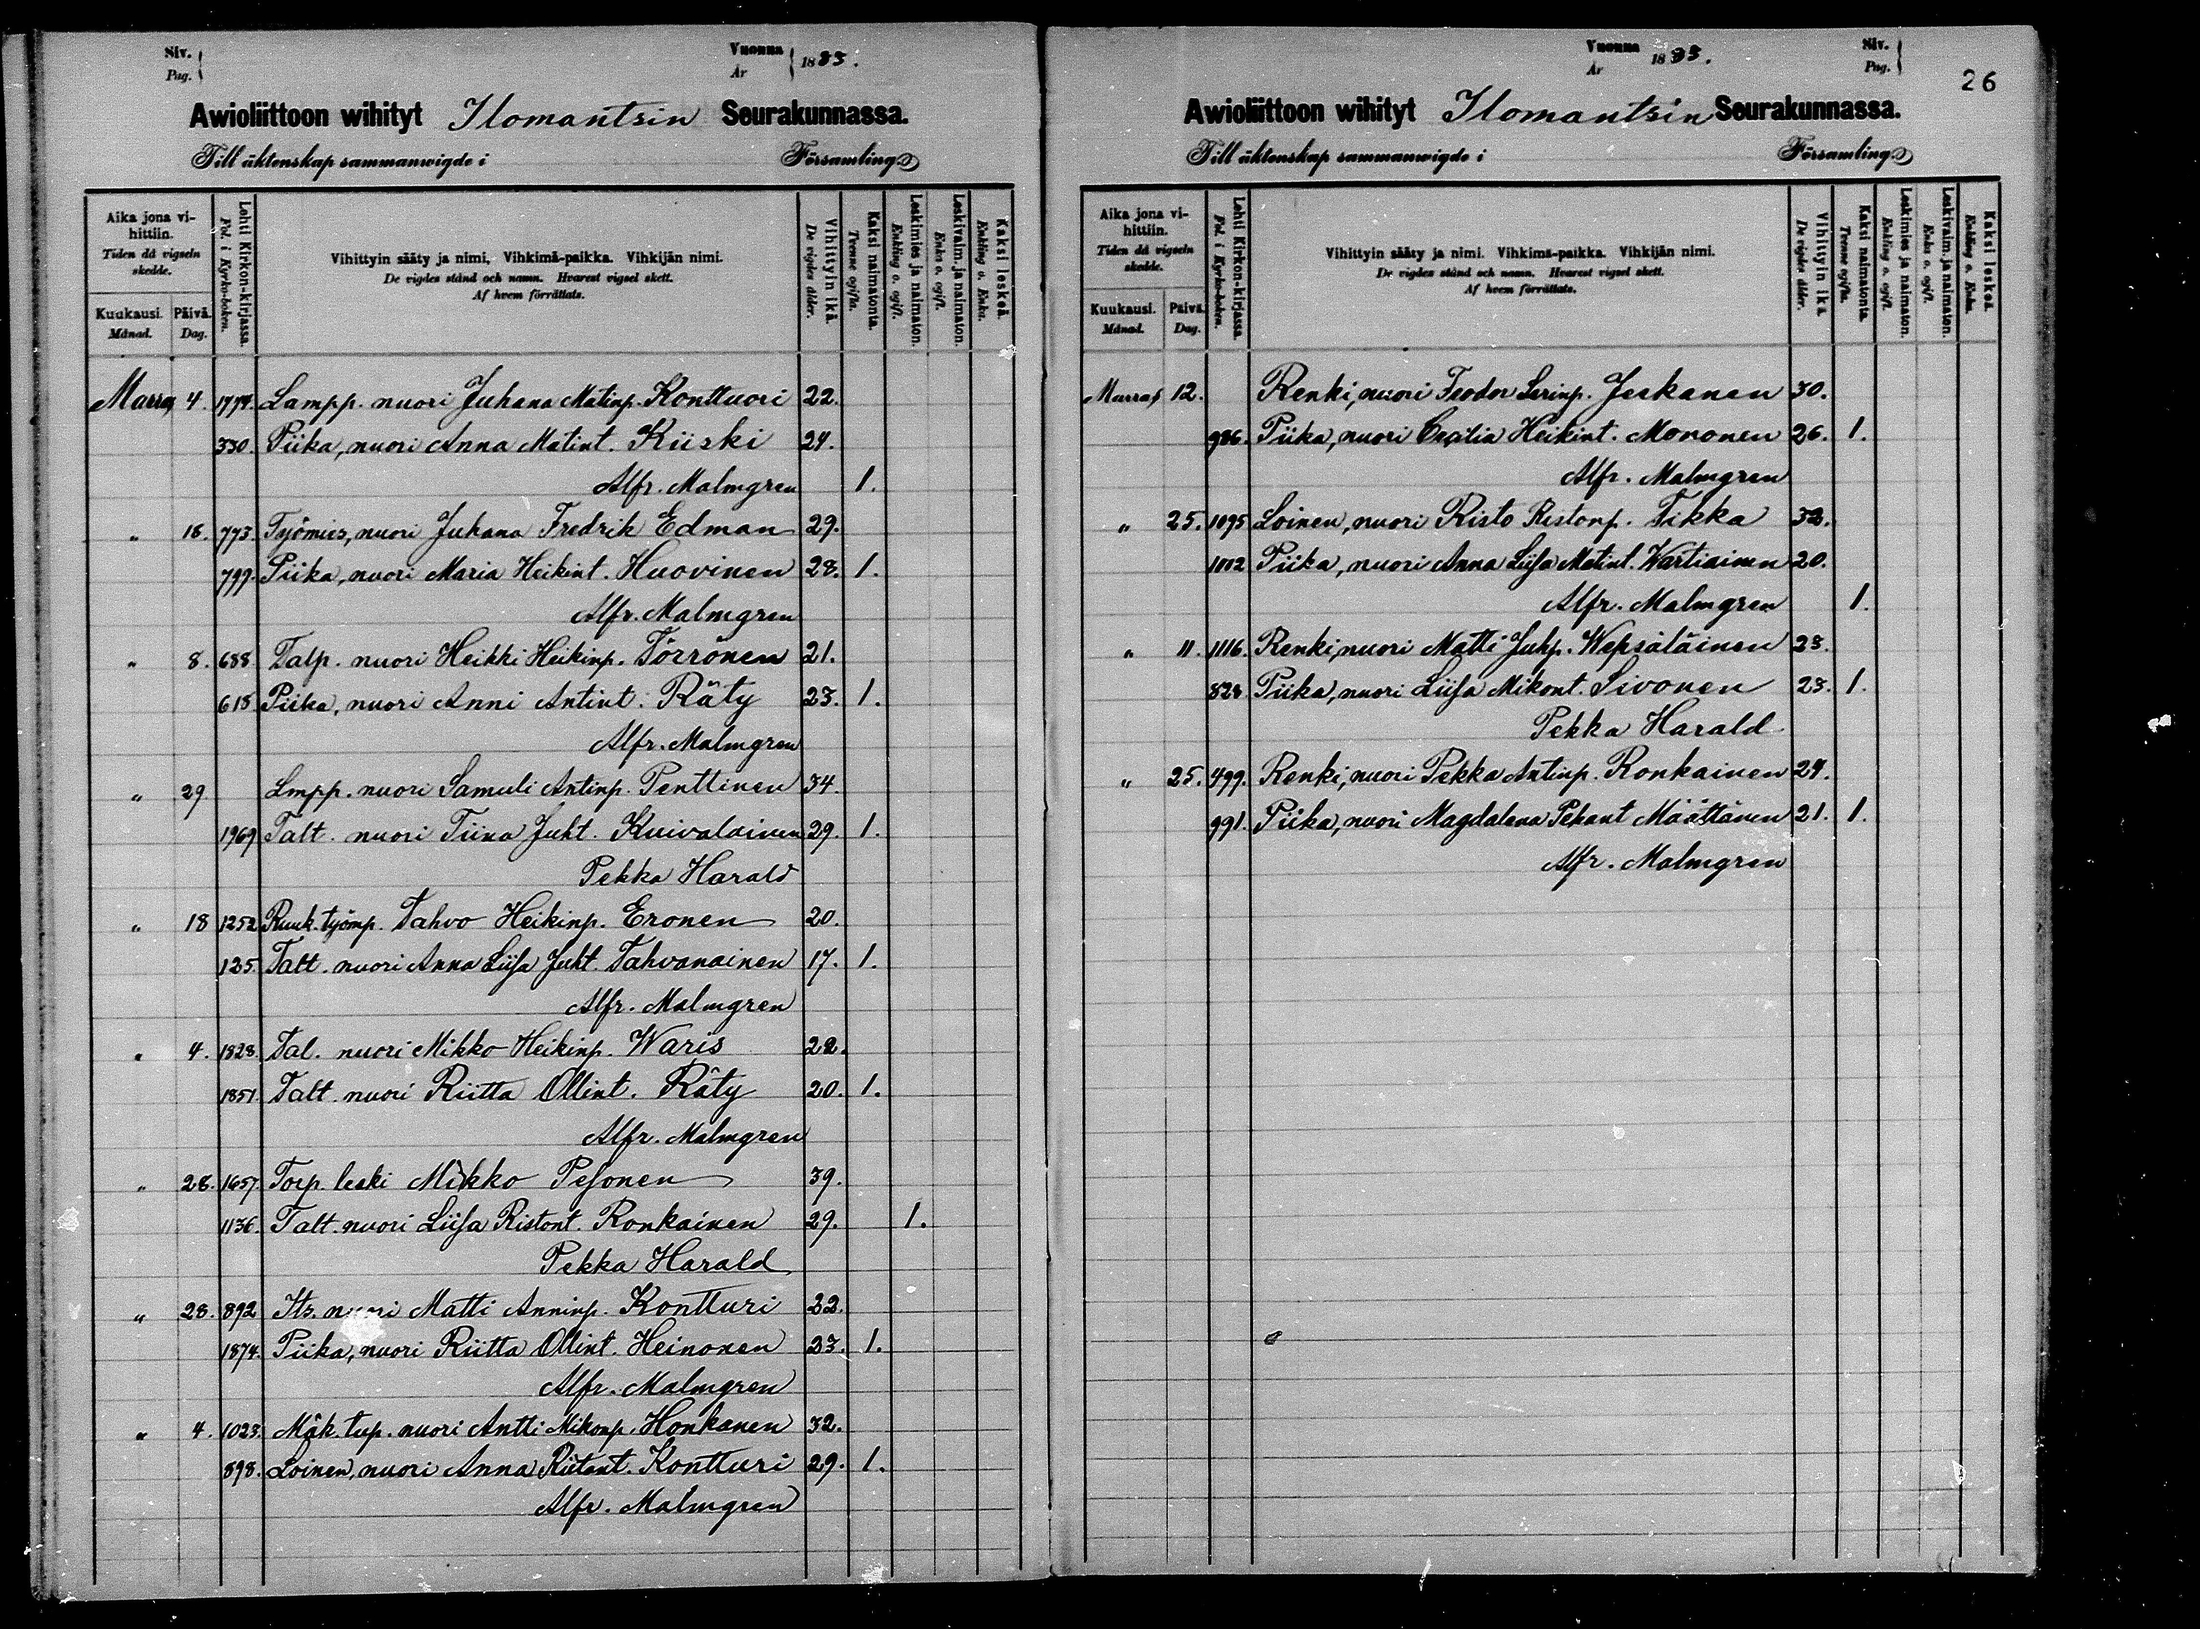 Siv.
Pag.
Vuonna
År
1883.
Awioliittoon wihityt Ilomantsin Seurakunnassa.
Till äktenskap sammanwigde i Församling
Aika jona vihittiin.
Tiden då vigseln skedde.
Kuukausi.
Månad.
Päivä.
Dag.
Lehti Kirkon-kirjassa.
Fol. i Kyrko-boken.
Vihittyin sääty ja nimi, Vihkimä-paikka. Vihkijän nimi.
De vigdes stånd och namn. Hvarest vigsel skett.
Af hvem förrättats.
Vihittyin ikä.
De vigdes ålder.
Kaksi naimatonta.
Tvenne ogifta.
Leskimies ja naimaton.
Enkling o. ogift.
Leskivaim. ja naimaton.
Enka o. ogift.
Kaksi leskeä.
Enkling o. Enka.
Marras 4. 1774. Lampp. nuori Juhana Matinp. Konttuori 22.
330. Piika, nuori Anna Matint. Kiiski 24.
Alfr. Malmgren 1.
„ 18. 773. Työmies, nuori Juhana Fredrik Edman 29.
799. Piika, nuori Maria Heikint. Huovinen 28. 1.
Alfr. Malmgren
„ 8. 688. Talp. nuori Heikki Heikinp. Törrönen 21.
618. Piika, nuori Anni Antint. Räty 23. 1.
Alfr. Malmgren
„ 29 Lmpp. nuori Samuli Antinp. Penttinen 34.
1969 Talt. nuori Tiina Juht. Kuivalainen 29. 1.
Pekka Harald
„ 18 1252 Ruuk. työmp. Tahvo Heikinp. Eronen 20.
125. Talt. nuori Anna Liisa Juht. Tahvanainen 17. 1.
Alfr. Malmgren
„ 4. 1828. Tal. nuori Mikko Heikinp. Waris 22.
1851. Talt. nuori Riitta Ollint. Räty 20. 1.
Alfr. Malmgren
„ 28. 1657. Torp. leski Mikko Pesonen 39.
1136. Talt. nuori Liisa Ristont. Ronkainen 29. 1.
Pekka Harald
„ 28. 892 Its. nuori Matti Anninp. Kontturi 22.
1874. Piika, nuori Riitta Ollint. Heinonen 23. 1.
Alfr. Malmgren
„ 4. 1023. Mäk. tup. nuori Antti Mikonp. Honkanen 32.
898. Loinen, nuori Anna Riitant. Kontturi 29. 1.
Alfr. Malmgren
Vuonna
År
1883.
Siv.
Pag.
26
Awioliittoon wihityt Ilomantsin Seurakunnassa.
Till äktenskap sammanwigde i Församling
Aika jona vihittiin.
Tiden då vigseln skedde.
Kuukausi.
Månad.
Päivä.
Dag.
Lehti Kirkon-kirjassa.
Fol. i Kyrko-boken.
Vihittyin sääty ja nimi. Vihkimä-paikka. Vihkijän nimi.
De vigdes stånd och namn. Hvarest vigsel skett.
Af hvem förrättats.
Vihittyin ikä.
De vigdes ålder.
Kaksi naimatonta.
Tvenne ogifta.
Leskimies ja naimaton.
Enkling o. ogift.
Leskivaim. ja naimaton.
Enka o. ogift.
Kaksi leskeä.
Enkling o. Enka.
Marras 12. Renki, nuori Feodor Jeskanen 30.
986. Piika, nuori Cecilia Heikint. Mononen 26. 1.
Alfr. Malmgren
„ 25. 1095 Loinen, nuori Risto Ristonp. Tikka 32.
1002 Piika, nuori Anna Liisa Matint. Wartiainen 20.
Alfr. Malmgren 1.
„ 11. 1116. Renki, nuori Matti Juhp. Wepsäläinen 23.
828. Piika, nuori Liisa Mikont. Sivonen 23. 1.
Pekka Harald
„ 25. 499. Renki, nuori Pekka Antinp. Ronkainen 24.
991. Piika, nuori Magdalena Pekant Määttänen 21. 1.
Alfr. Malmgren